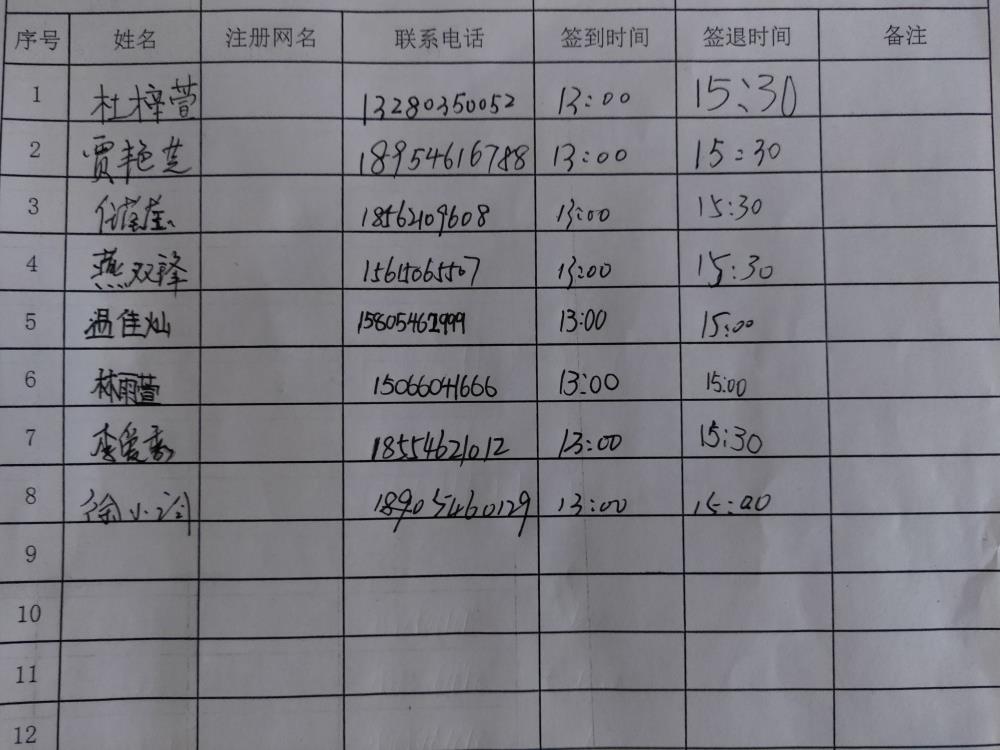 序号 姓名 注册网名 联系电话 签到时间 签退时间 备注
1 杜梓萱 13280350052 13:00 15:30
2 贾艳芝 18954616788 13:00 15:30
3 18562109608 13:00 15:30
4 燕双锋 15615065507 13:00 15:30
5 温佳灿 13:00 15:00
6 林雨萱 15066041666 13:00 15:00
7 李爱 18554621012 13:00 15:30
8 徐小 18905460129 13:00
9
10
11
12